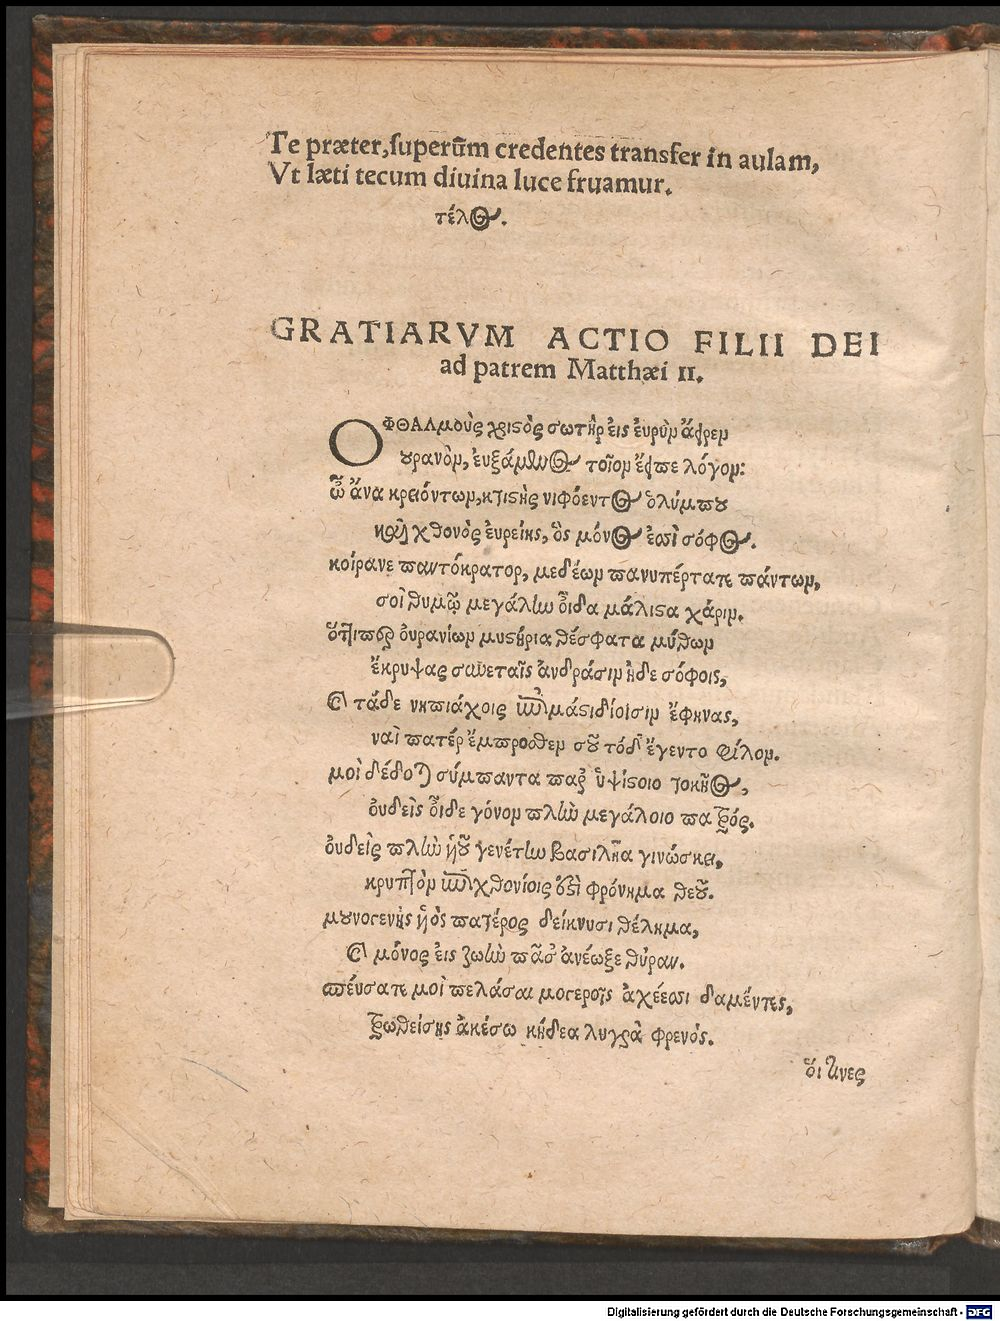 Te præter, superûm credentes transfer in aulam,
Vt læti tecum diuina luce fruamur.
τέλος.
GRATIARVM ACTIO FILII DEI
ad patrem Matthæi II.
ΟΦΘΑΛμοὺς χριςὸς σωτὴρ ἐις ἐυρὺμ
ουρανὸμ, ἐυξάμενος τοῖομ λόγομ:
ὦ ἄνα κρειόντωμ, κτιςὴς νιφόεντος ὀλύμπου
καὶ χθονὸς ἐυρείης, ὃς μόνος ἐσσὶ σόφος.
κοίρανε παντόκρατορ, μεδέωμ πανυπέρτατε πάντωμ,
σοὶ θυμῷ μεγάλην ὄιδα μάλιςα χάριμ.
ὅττιπερ ὀυρανίωμ μυςήρια θέσφατα μύθωμ
ἔκρυψας συνεταῖς ἀνδράσιμ ἠδε σόφοις,
καὶ τάδε νηπιάχοις ἔφηνας,
ναὶ πατέρ ἔμπροσθεμ σοῦ τόδ' ἔγεντο φίλομ.
μοὶ δέδοται σύμπαντα παρ' ὑψίςοιο τοκῆος,
ὀυδεὶς ὄιδε γόνομ πλὴν μεγάλοιο πατρός.
ὀυδεὶς πλὴν ὑιοῦ γενέτην βασιλῆα γινώσκει,
κρυπτὸμ ἐπιχθονίοις ἐςὶ φρόνημα θεοῦ.
μουνογενὴς ὑιὸς πατέρος δείκνυσι θέλημα,
καὶ μόνος ἐις ζωὴν πᾶσ' ἀνέωξε θύραν.
σπέυσατε μοὶ πελάσαι μογεροῖς ἀχέεσσι δαμέντες,
τρωθείσης ἀκέσω κήδεα λυγρὰ φρενός.
ὅι τινες
Digitalisierung gefördert durch die Deutsche Forschungsgemeinschaft - DFG